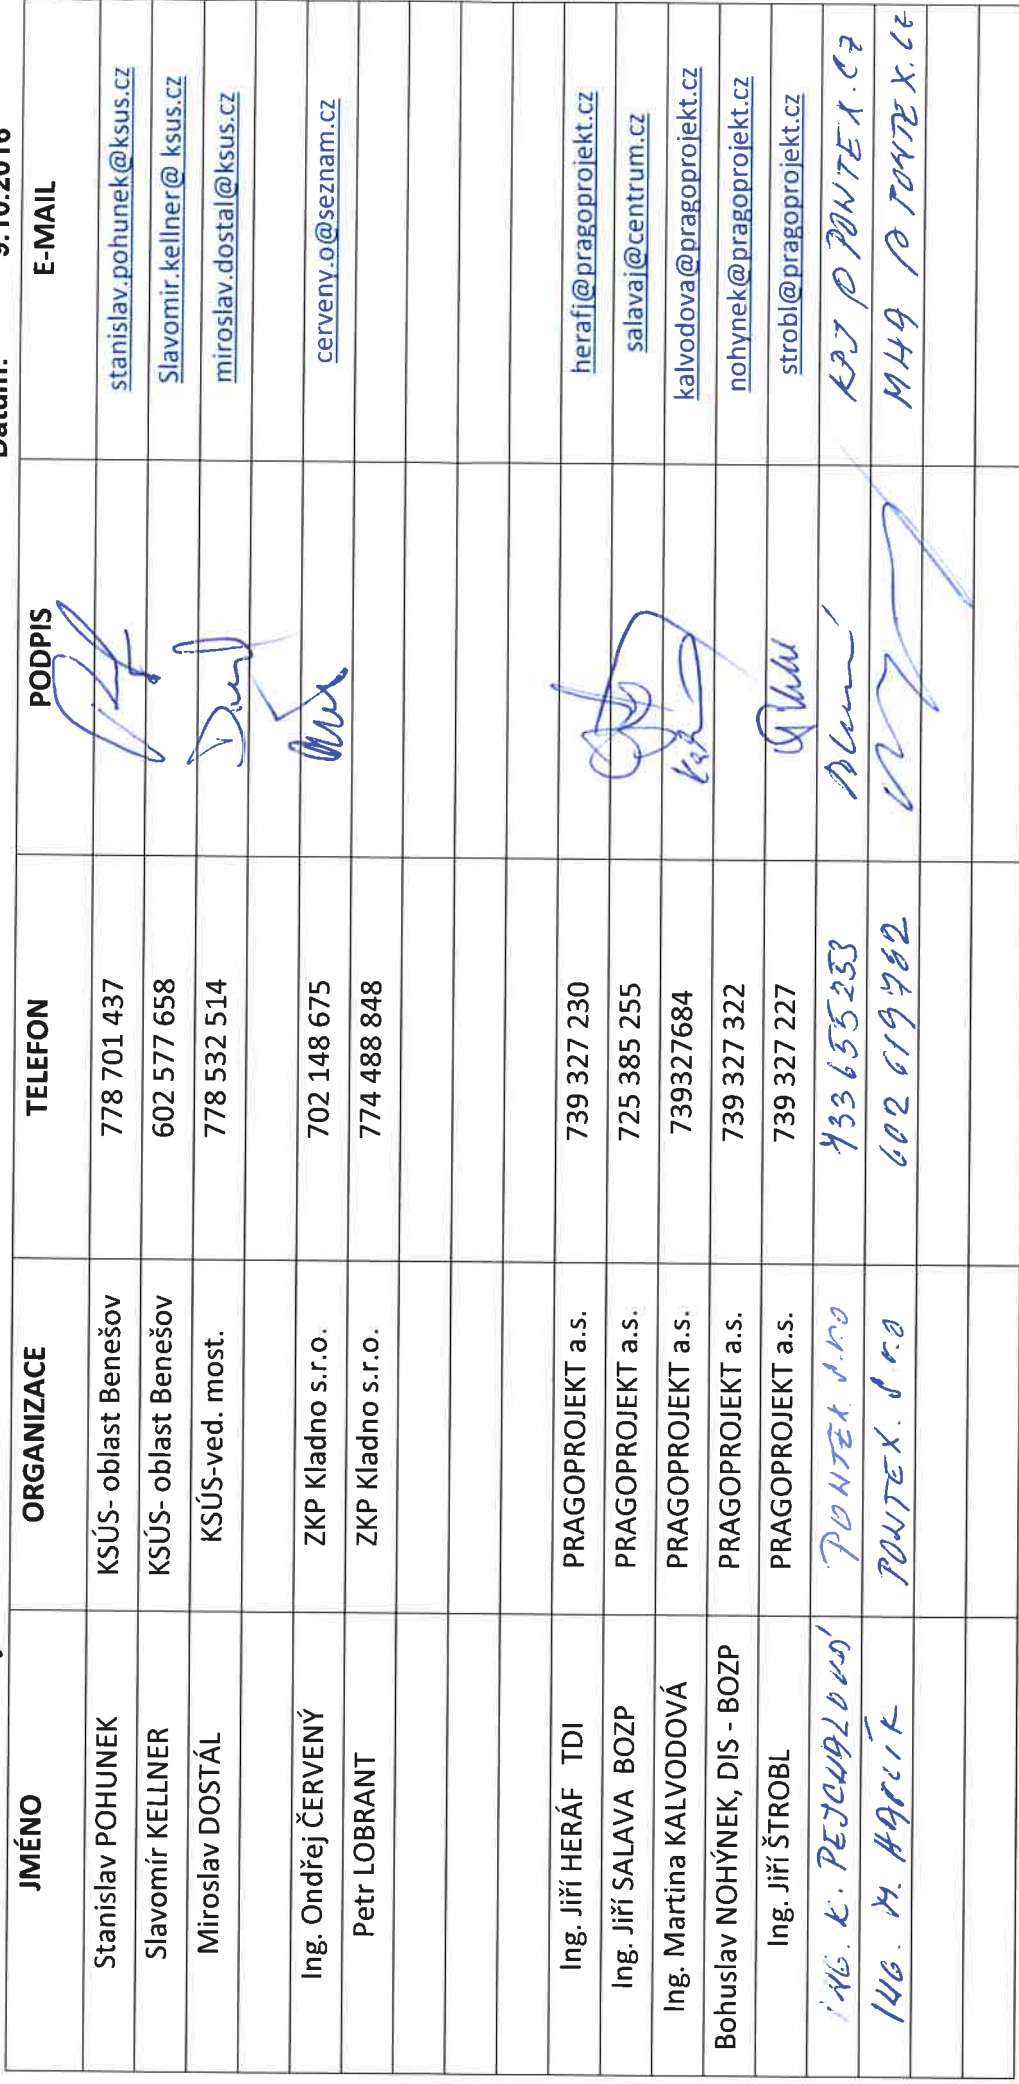 Datum: 9.10.2016
JMÉNO ORGANIZACE TELEFON PODPIS E-MAIL
Stanislav POHUNEK KSÚS- oblast Benešov 778 701 437 stanislav.pohunek@ksus.cz
Slavomír KELLNER KSÚS- oblast Benešov 602 577 658 Slavomir.kellner@ ksus.cz
Miroslav DOSTÁL KSÚS-ved. most. 778 532 514 miroslav.dostal@ksus.cz
Ing. Ondřej ČERVENÝ ZKP Kladno s.r.o. 702 148 675 cerveny.o@seznam.cz
Petr LOBRANT ZKP Kladno s.r.o. 774 488 848
Ing. Jiří HERÁF TDI PRAGOPROJEKT a.s. 739 327 230 herafj@pragoprojekt.cz
Ing. Jiří SALAVA BOZP PRAGOPROJEKT a.s. 725 385 255 salavaj@centrum.cz
Ing. Martina KALVODOVÁ PRAGOPROJEKT a.s. 739327684 kalvodova@pragoprojekt.cz
Bohuslav NOHÝNEK, DIS - BOZP PRAGOPROJEKT a.s. 739 327 322 nohynek@pragoprojekt.cz
Ing. Jiří ŠTROBL PRAGOPROJEKT a.s. 739 327 227 strobl@pragoprojekt.cz
ING. K. PONTEX s.r.o 733 655 233 PONTEX.CZ
ING. M. PONTEX. s.r.o 602 619 782 PONTEX.CZ